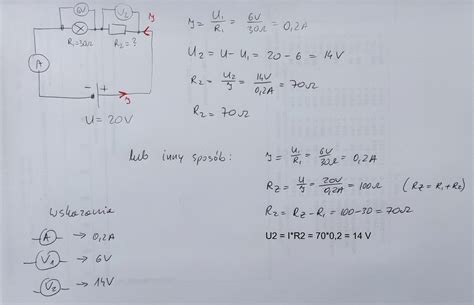 6V
V2
y
R1=30Ω
R2=?
A
- +
y
U=20V
y = U1/R1 = 6V/30Ω = 0,2A
U2 = U-U1 = 20-6 = 14V
R2 = U2/y = 14V/0,2A = 70Ω
R2 = 70Ω
lub inny sposób:
y = U1/R1 = 6V/30Ω = 0,2A
Rz = U/y = 20V/0,2A = 100Ω (Rz = R1+R2)
R2 = Rz-R1 = 100-30 = 70Ω
U2 = I*R2 = 70*0,2 = 14 V
Wskazania
A → 0,2A
V1 → 6V
V2 → 14V